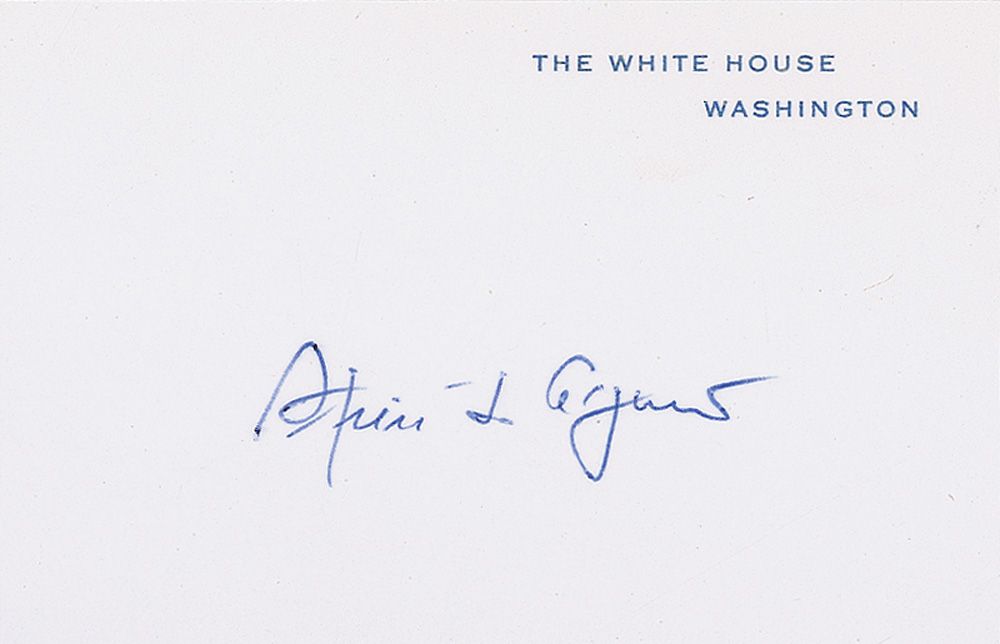 THE WHITE HOUSE
WASHINGTON
Spiro T. Agnew